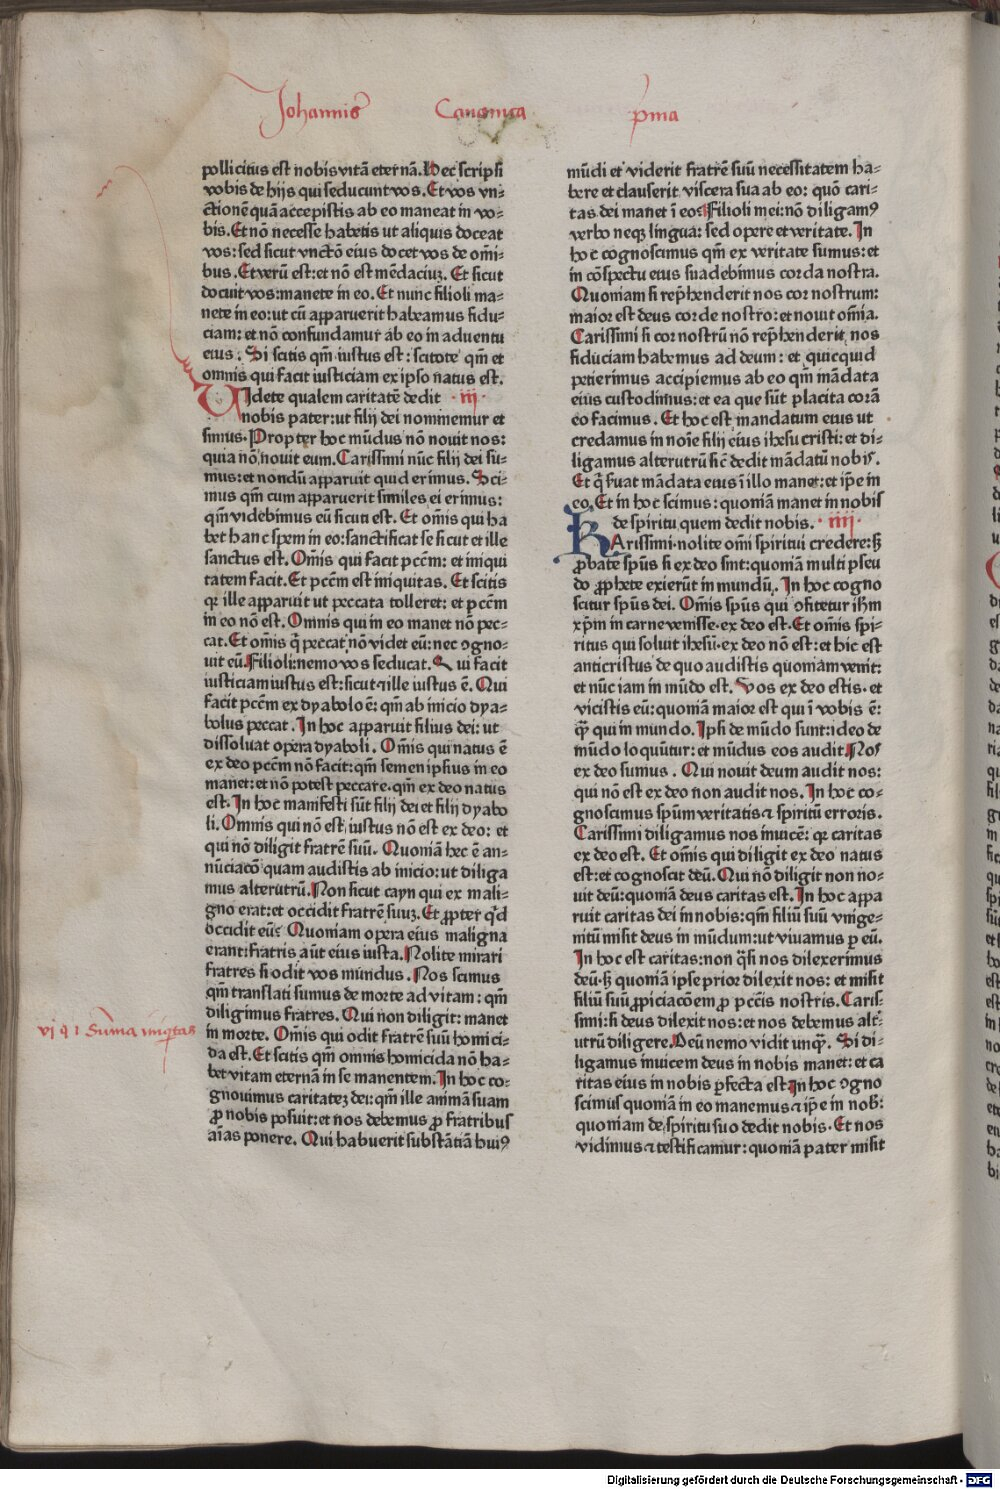 Johannis Canonica p̄ma
pollicitus est nobis vitā eternā. Hec scripsi
vobis de hijs qui seducunt vos. Et vos vn⸗
ctionē quā accepistis ab eo maneat in vo⸗
bis. Et nō necesse habetis ut aliquis doceat
vos: sed sicut vnctō eius docet vos de om̄i⸗
bus. Et verū est: et nō est mēdaciuꝫ. Et sicut
docuit vos: manete in eo. Et nunc filioli ma⸗
nete in eo: ut cū apparuerit habeamus fidu⸗
ciam: et nō confundamur ab eo in aduentu
eius. Si scitis qm̄ iustus est: scitote qm̄ et
omnis qui facit iusticiam ex ipso natus est.
VIdete qualem caritatē dedit · iii ·
nobis pater: ut filij dei nominemur et
simus. Propter hoc mūdus nō nouit nos:
quia nō nouit eum. Carissimi nūc filij dei su⸗
mus: et nondū apparuit quid erimus. Sci⸗
mus qm̄ cum apparuerit similes ei erimus:
qm̄ videbimus eū sicuti est. Et om̄is qui ha
bet hanc spem in eo: sanctificat se sicut et ille
sanctus est. Om̄is qui facit pcc̄m: et iniqui
tatem facit. Et pcc̄m est iniquitas. Et scitis
qꝛ ille apparuit ut peccata tolleret: et pcc̄m
in eo nō est. Omnis qui in eo manet nō pec⸗
cat. Et om̄is q̄ peccat nō videt eū: nec ↄgno⸗
uit eū. Filioli: nemo vos seducat. Qui facit
iusticiam iustus est: sicut ⁊ ille iustus ē. Qui
facit pcc̄m ex dyabolo ē: qm̄ ab inicio dya⸗
bolus peccat. In hoc apparuit filius dei: ut
dissoluat opera dyaboli. Om̄is qui natus ē
ex deo pcc̄m nō facit: qm̄ semen ipsius in eo
manet: et nō potest peccare. qm̄ ex deo natus
est. In hoc manifesti sūt filij dei et filij dyabo
li. Omnis qui nō est iustus nō est ex deo: et
qui nō diligit fratrē suū. Quoniā hec ē an⸗
nūciacō quam audistis ab inicio: ut diliga
mus alterutrū. Non sicut cayn qui ex mali⸗
gno erat: et occidit fratrē suuꝫ. Et ꝓpter qd̄
occidit eū? Quoniam opera eius maligna
erant: fratris aūt eius iusta. Nolite mirari
fratres si odit vos mundus. Nos scimus
qm̄ translati sumus de morte ad vitam: qm̄
diligimus fratres. Qui non diligit: manet
in morte. Om̄is qui odit fratrē suū homici⸗
da est. Et scitis qm̄ omnis homicida nō ha⸗
bet vitam eternā in se manentem. In hoc co⸗
gnouimus caritateꝫ dei: qm̄ ille animā suam
ꝓ nobis posuit: et nos debemus ꝓ fratribus
aīas ponere. Qui habuerit substātiā huiꝰ
mūdi et viderit fratrē suū necessitatem ha⸗
bere et clauserit viscera sua ab eo: quō cari⸗
tas dei manet ī eo? Filioli mei: nō diligamꝰ
verbo neqꝫ lingua: sed opere et veritate. In
hoc cognoscimus qm̄ ex veritate sumus: et
in cōspectu eius suadebimus corda nostra.
Quoniam si rep̄henderit nos cor nostrum:
maior est deus corde nostro: et nouit om̄ia.
Carissimi si cor nostrū nō rep̄henderit nos
fiduciam habemus ad deum: et quicquid
petierimus accipiemus ab eo qm̄ mādata
eius custodimus: et ea que sūt placita corā
eo facimus. Et hoc est mandatum eius ut
credamus in noīe filij eius ihesu cristi: et di⸗
ligamus alterutrū sic̄ dedit mādatū nobis.
Et q̄ ẜuat mādata eius ī illo manet: et ip̄e in
eo. Et in hoc scimus: quoniā manet in nobis
de spiritu quem dedit nobis. · iiii ·
KArissimi. nolite om̄i spiritui credere: sꝫ
ꝓbate sp̄us si ex deo sint: quoniā multi pseu
do ꝓphete exierūt in mundū. In hoc cogno
scitur sp̄us dei. Om̄is sp̄us qui ↄfitetur ihm̄
xp̄m in carne venisse. ex deo est. Et om̄is spi⸗
ritus qui soluit ihesū. ex deo nō est: et hic est
anticristus de quo audistis quoniam venit:
et nūc iam in mūdo est. Vos ex deo estis. et
vicistis eū: quoniā maior est qui ī vobis ē:
qͣ̄ qui in mundo. Ipsi de mūdo sunt: ideo de
mūdo loquūtur: et mūdus eos audit. Nos
ex deo sumus. Qui nouit deum audit nos:
qui nō est ex deo non audit nos. In hoc co⸗
gnoscimus spūm veritatis ⁊ spiritū erroris.
Carissimi diligamus nos inuicē: qꝛ caritas
ex deo est. Et om̄is qui diligit ex deo natus
est: et cognoscit deū. Qui nō diligit non no⸗
uit deū: quoniā deus caritas est. In hoc appa
ruit caritas dei in nobis: qm̄ filiū suū vnige⸗
nitū misit deus in mūdum: ut viuamus p eū.
In hoc est caritas: non q̄si nos dilexerimus
deū. sꝫ quoniā ipse prior dilexit nos: et misit
filiū suū ꝓpiciacōem ꝓ pcc̄is nostris. Caris⸗
simi: si deus dilexit nos: et nos debemus alt̄⸗
utrū diligere. Deū nemo vidit unqͣ̄. Si di⸗
ligamus inuicem deus in nobis manet: et ca
ritas eius in nobis ꝑfecta est. In hoc ↄgno
scimus quoniā in eo manemus ⁊ ip̄e in nob̄:
quoniam de spiritu suo dedit nobis. Et nos
vidimus ⁊ testificamur: quoniā pater misit
Digitalisierung gefördert durch die Deutsche Forschungsgemeinschaft - DFG